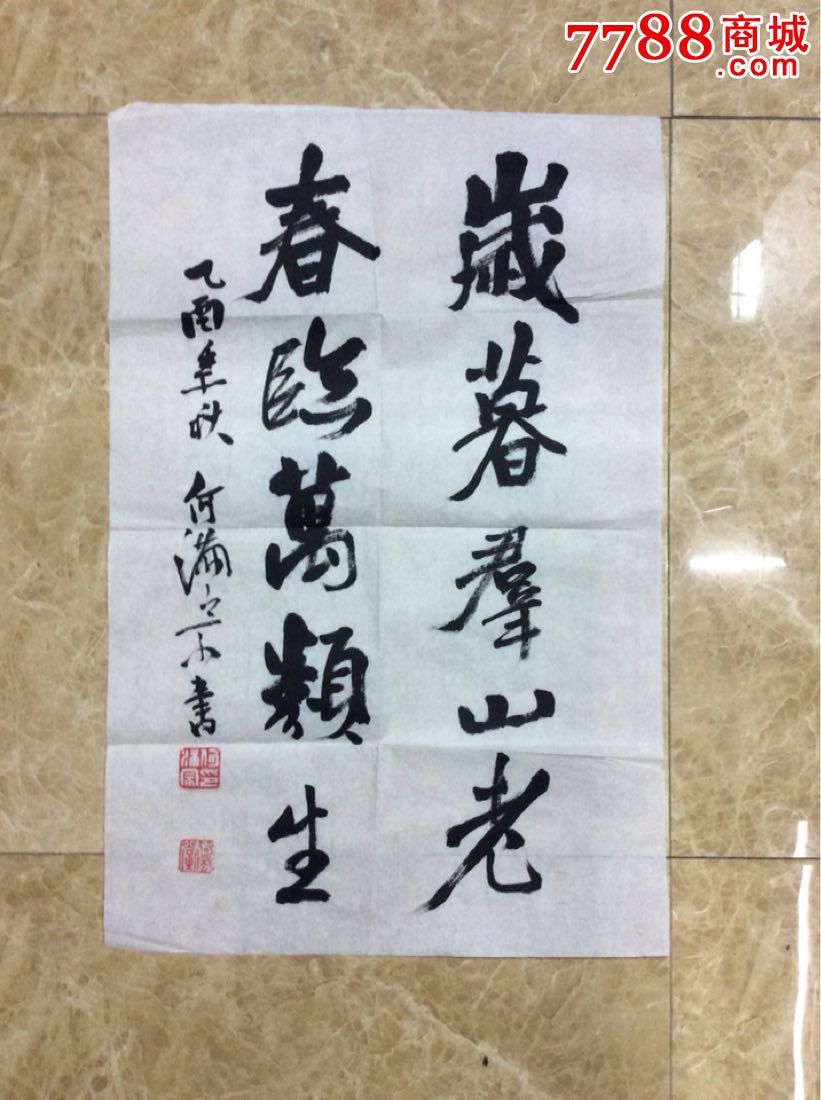 7788商城
.com
歲暮羣山老
春臨萬類生
乙酉季秋 何滿宗書